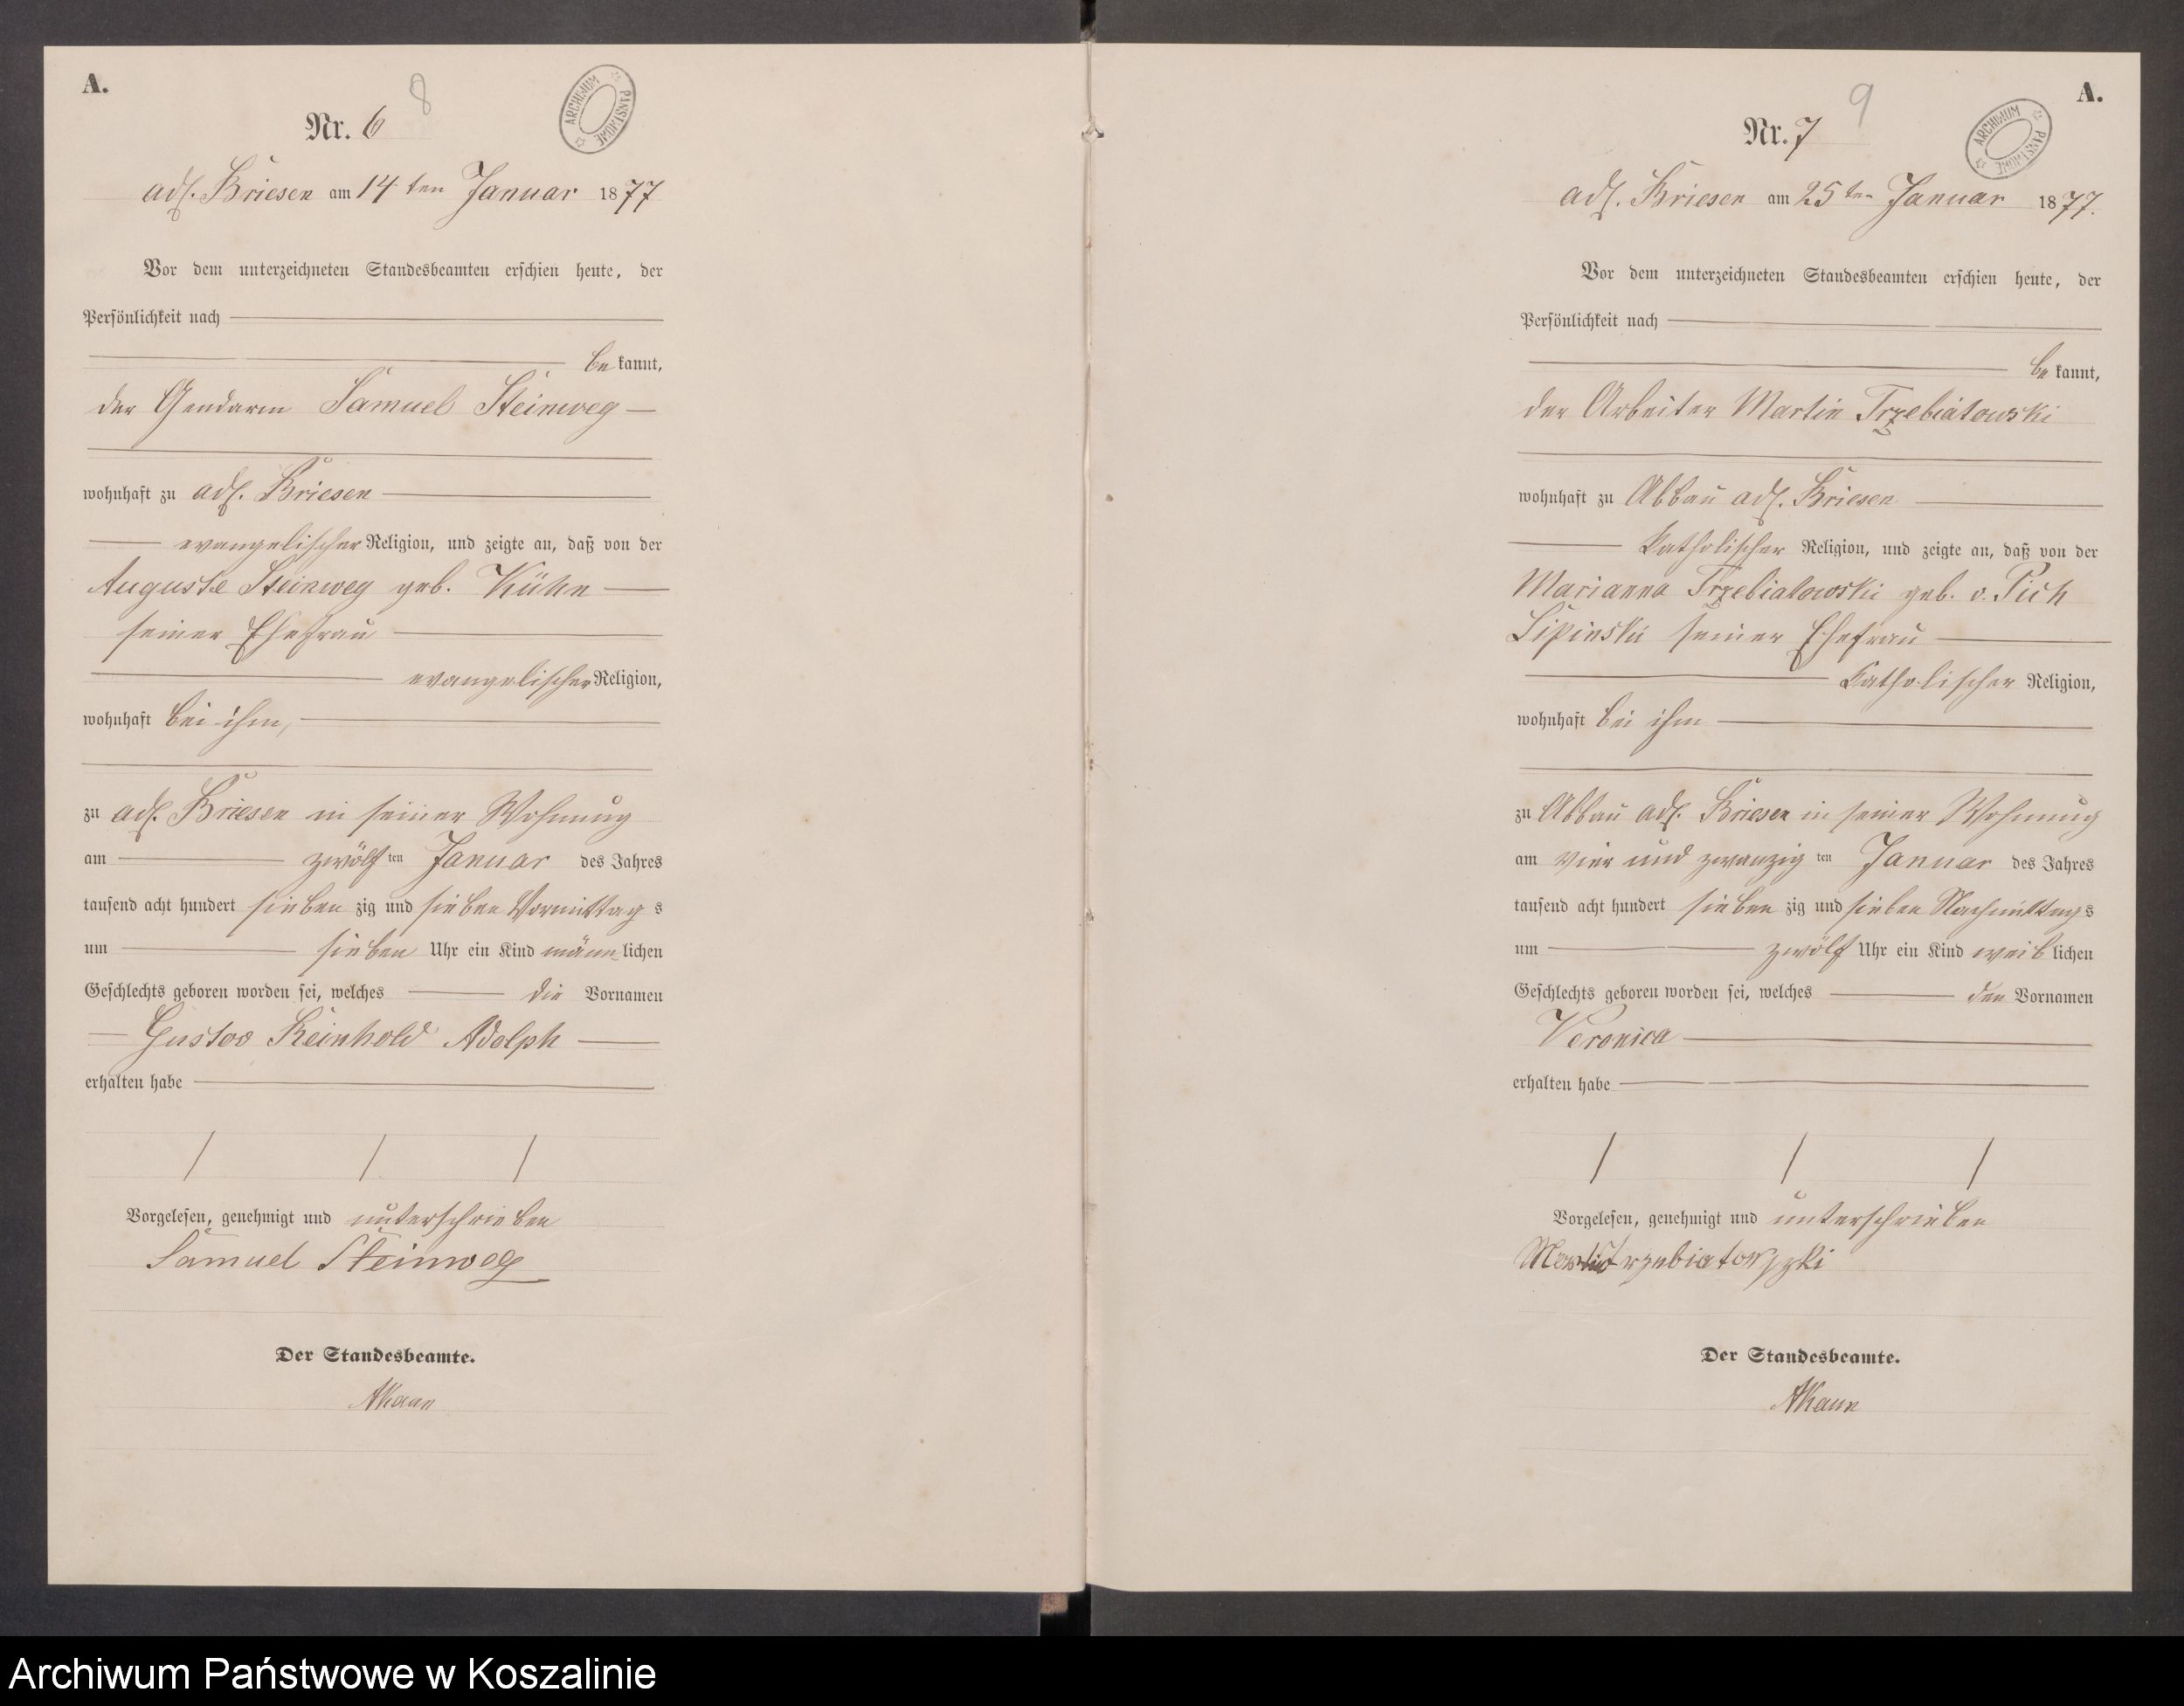 A.
8
Nr. 6
ARCHIWUM PAŃSTWOWE
adl. Briesen am 14 ten Januar 1877
Vor dem unterzeichneten Standesbeamten erschien heute, der
Persönlichkeit nach
be kannt,
der Gendarm Samuel Steinweg
wohnhaft zu adl. Briesen
evangelischer Religion, und zeigte an, daß von der
Auguste Steinweg geb. Kühn
seiner Ehefrau
evangelischer Religion,
wohnhaft bei ihm,
zu adl. Briesen in seiner Wohnung
am zwölf ten Januar des Jahres
tausend acht hundert sieben zig und sieben Vormittag s
um sieben Uhr ein Kind männ lichen
Geschlechts geboren worden sei, welches die Vornamen
Gustav Reinhold Adolph
erhalten habe
Vorgelesen, genehmigt und unterschrieben
Samuel Steinweg
Der Standesbeamte.
AKaun
A.
9
Nr. 7
ARCHIWUM PAŃSTWOWE
adl. Briesen am 25 ten Januar 1877.
Vor dem unterzeichneten Standesbeamten erschien heute, der
Persönlichkeit nach
be kannt,
der Arbeiter Martin Trzebiatowski
wohnhaft zu Abbau adl. Briesen
katholischer Religion, und zeigte an, daß von der
Marianna Trzebiatowski geb. v. Pich
Lipinski seiner Ehefrau
katholischer Religion,
wohnhaft bei ihm
zu Abbau adl. Briesen in seiner Wohnung
am vier und zwanzig ten Januar des Jahres
tausend acht hundert sieben zig und sieben Nachmittag s
um zwölf Uhr ein Kind weib lichen
Geschlechts geboren worden sei, welches den Vornamen
Veronica
erhalten habe
Vorgelesen, genehmigt und unterschrieben
Der Standesbeamte.
AKaun
Archiwum Państwowe w Koszalinie